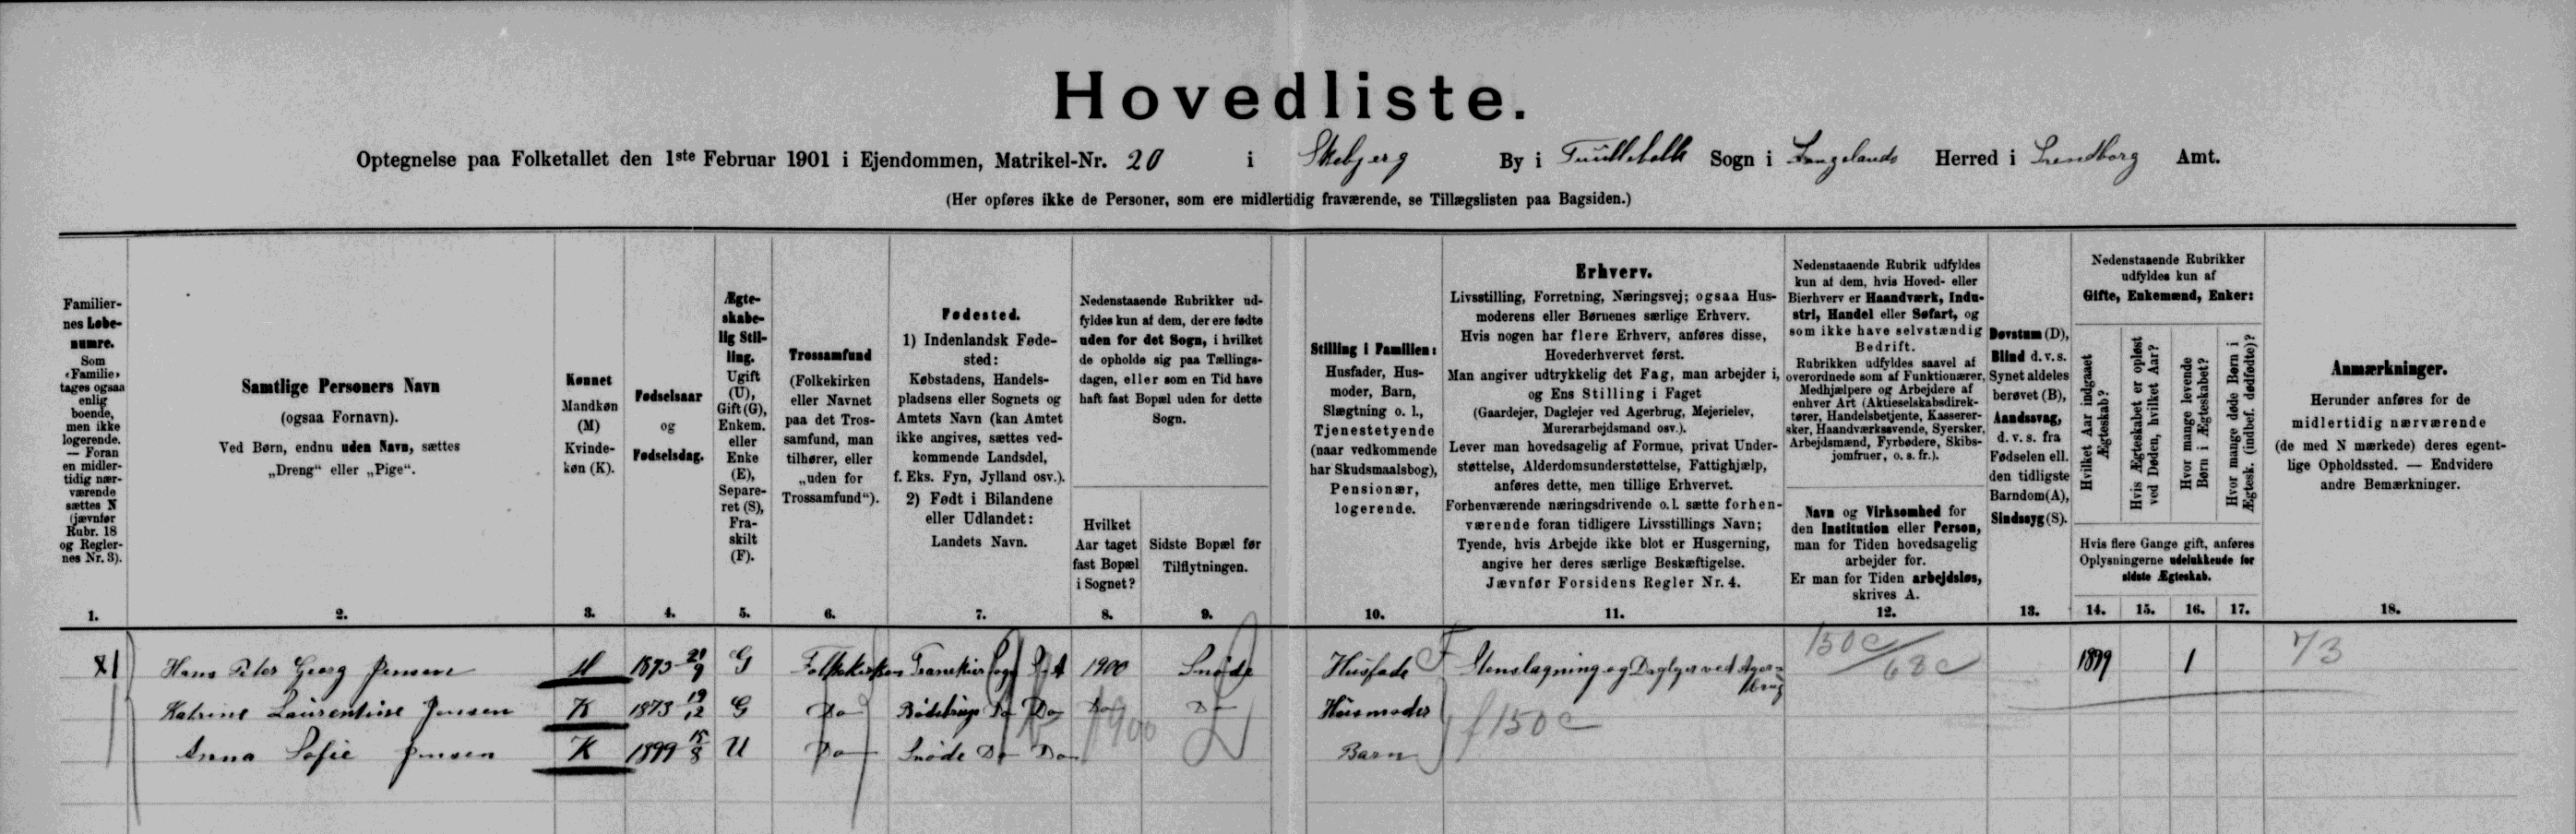 Hovedliste.
Optegnelse paa Folketallet den 1ste Februar 1901 i Ejendommen, Matrikel-Nr. 20 i Skebjerg By i Tullebølle Sogn i Langelands Herred i Svendborg Amt.
(Her opføres ikke de Personer, som ere midlertidig fraværende, se Tillægslisten paa Bagsiden.)
Familier-
nes Løbe-
numre.
Som
‹Familie›
tages ogsaa
enlig
boende,
men ikke
logerende.
— Foran
en midler-
tidig nær-
værende
sættes N
(jævnfør
Rubr. 18
og Regler-
nes Nr. 3).
1.
Samtlige Personers Navn
(ogsaa Fornavn).
Ved Børn, endnu uden Navn, sættes
„Dreng“ eller „Pige“.
2.
Kønnet
Mandkøn
(M)
Kvinde-
køn (K).
3.
Fødselsaar
og
Fødselsdag.
4.
Ægte-
skabe-
lig Stil-
ling.
Ugift
(U),
Gift (G),
Enkem.
eller
Enke
(E),
Separe-
ret (S),
Fra-
skilt
(F).
5.
Trossamfund
(Folkekirken
eller Navnet
paa det Tros-
samfund, man
tilhører, eller
„uden for
Trossamfund“).
6.
Fødested.
1) Indenlandsk Føde-
sted:
Købstadens, Handels-
pladsens eller Sognets og
Amtets Navn (kan Amtet
ikke angives, sættes ved-
kommende Landsdel,
f. Eks. Fyn, Jylland osv.).
2) Født i Bilandene
eller Udlandet:
Landets Navn.
7.
Nedenstaaende Rubrikker ud-
fyldes kun af dem, der ere fødte
uden for det Sogn, i hvilket
de opholde sig paa Tællings-
dagen, eller som en Tid have
haft fast Bopæl uden for dette
Sogn.
Hvilket
Aar taget
fast Bopæl
i Sognet?
8.
Sidste Bopæl før
Tilflytningen.
9.
Stilling i Familien:
Husfader, Hus-
moder, Barn,
Slægtning o. l.,
Tjenestetyende
(naar vedkommende
har Skudsmaalsbog),
Pensionær,
logerende.
10.
Erhverv.
Livsstilling, Forretning, Næringsvej; ogsaa Hus-
moderens eller Børnenes særlige Erhverv.
Hvis nogen har flere Erhverv, anføres disse,
Hovederhvervet først.
Man angiver udtrykkelig det Fag, man arbejder i,
og Ens Stilling i Faget
(Gaardejer, Daglejer ved Agerbrug, Mejerielev,
Murerarbejdsmand osv.).
Lever man hovedsagelig af Formue, privat Under-
støttelse, Alderdomsunderstøttelse, Fattighjælp,
anføres dette, men tillige Erhvervet.
Forhenværende næringsdrivende o. l. sætte forhen-
værende foran tidligere Livsstillings Navn;
Tyende, hvis Arbejde ikke blot er Husgerning,
angive her deres særlige Beskæftigelse.
Jævnfør Forsidens Regler Nr. 4.
11.
Nedenstaaende Rubrik udfyldes
kun af dem, hvis Hoved- eller
Bierhverv er Haandværk, Indu-
stri, Handel eller Søfart, og
som ikke have selvstændig
Bedrift.
Rubrikken udfyldes saavel af
overordnede som af Funktionærer,
Medhjælpere og Arbejdere af
enhver Art (Aktieselskabsdirek-
tører, Handelsbetjente, Kasserer-
sker, Haandværkssvende, Syersker,
Arbejdsmænd, Fyrbødere, Skibs-
jomfruer, o. s. fr.).
Navn og Virksomhed for
den Institution eller Person,
man for Tiden hovedsagelig
arbejder for.
Er man for Tiden arbejdsløs,
skrives A.
12.
Døvstum (D),
Blind d. v. s.
Synet aldeles
berøvet (B),
Aandssvag,
d. v. s. fra
Fødselen ell.
den tidligste
Barndom (A),
Sindssyg (S).
13.
Nedenstaaende Rubrikker
udfyldes kun af
Gifte, Enkemænd, Enker:
Hvilket Aar indgaaet
Ægteskab?
Hvis Ægteskabet er opløst
ved Døden, hvilket Aar?
Hvor mange levende
Børn i Ægteskabet?
Hvor mange døde Børn i
Ægtesk. (indbef. dødfødte)?
Hvis flere Gange gift, anføres
Oplysningerne udelukkende for
sidste Ægteskab.
14. 15. 16. 17.
Anmærkninger.
Herunder anføres for de
midlertidig nærværende
(de med N mærkede) deres egent-
lige Opholdssted. — Endvidere
andre Bemærkninger.
18.
x1 Hans Peter Georg Jensen M 1873 21/9 G Folkekirken Tranekier Sogn 1900 Snøde Husfader F Stenslagning og Daglejer ved Agerbrug 150 c 68 c 1899 1 73
Katrine Laurentine Jensen K 1873 19/12 G Do Bødstrup Do Do Do Do Husmoder f 150 c
Anna Sofie Jensen K 1899 15/8 U Do Snøde Do Do 1900 Barn